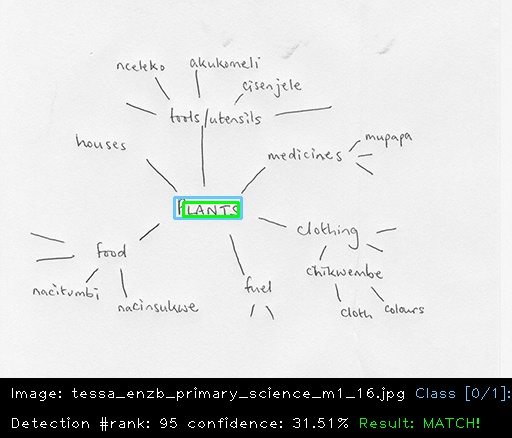 nceleko
akukomeli
cisenjele
tools/utensils
houses
medicines
mupapa
PLANTS
clothing
food
chikwembe
nacitumbi
nacinsukwe
fuel
cloth
colours
Image: tessa_enzb_primary_science_m1_16.jpg Class [0/1]:
Detection #rank: 95 confidence: 31.51% Result: MATCH!